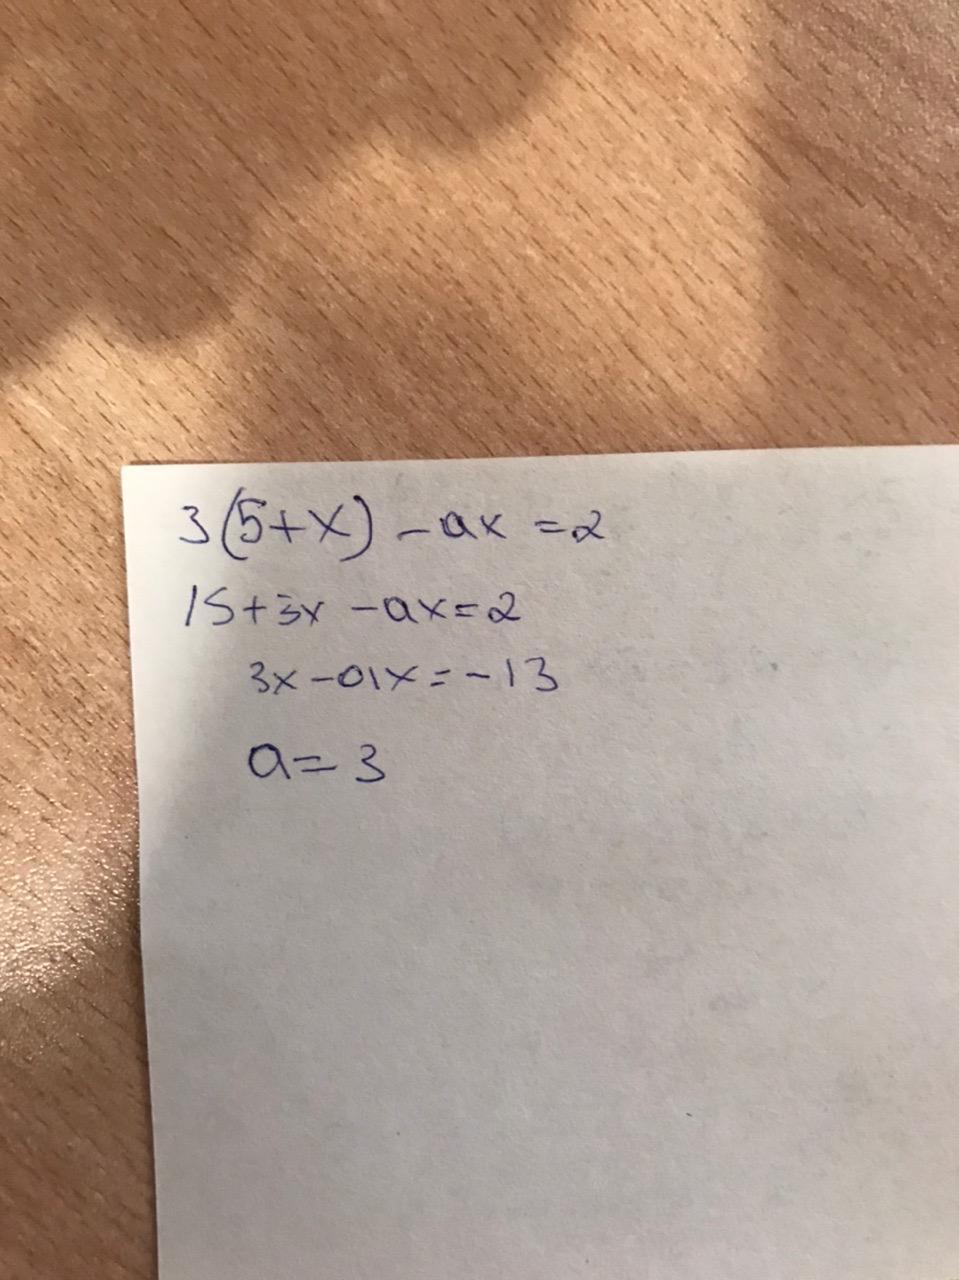 3(5+x) -ax =2
15+3x -ax=2
3x-ax=-13
a=3